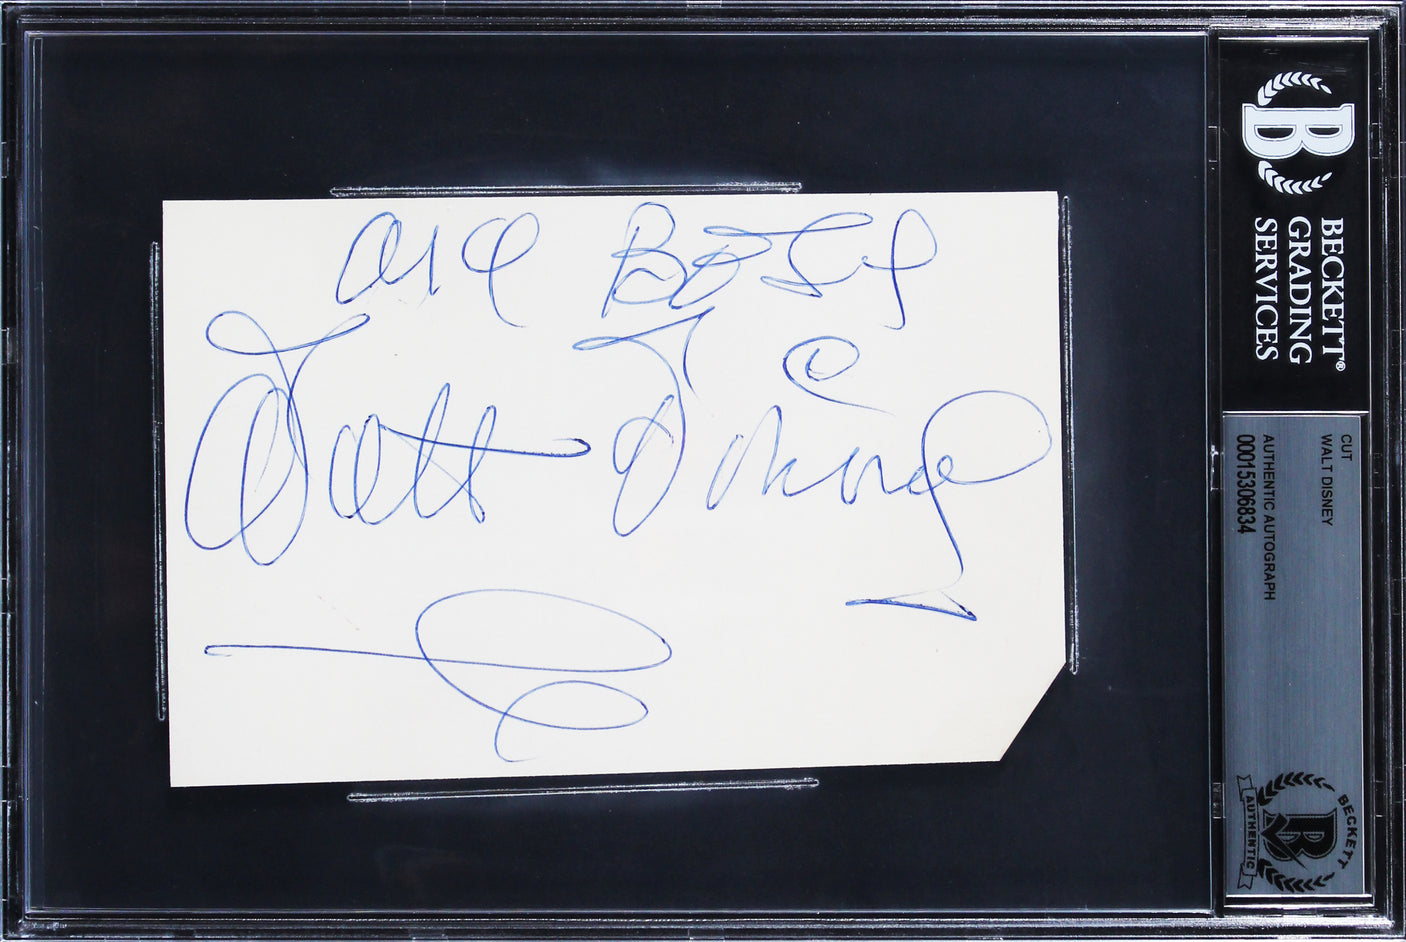 all Best
Walt Disney
BECKETT®
GRADING
SERVICES
CUT
WALT DISNEY
AUTHENTIC AUTOGRAPH
00015306834
BECKETT
AUTHENTIC